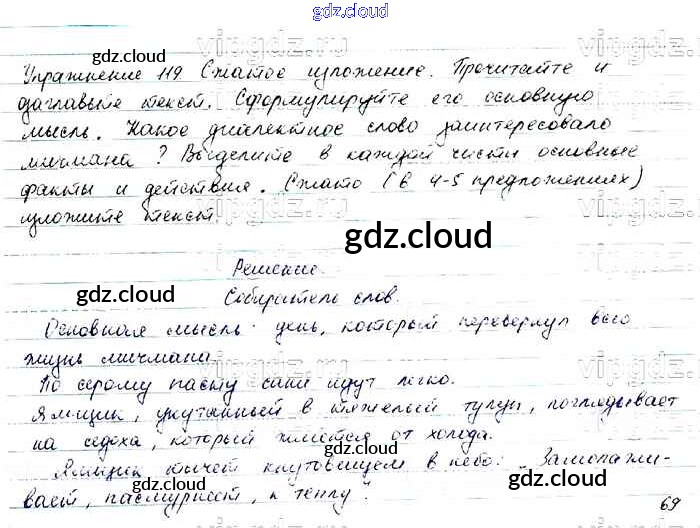 gdz.cloud
gdz.cloud
vipgdz.com
Упражнение 119 Сжатое изложение. Прочитайте и
озаглавьте текст. Сформулируйте его основную
мысль. Какое диалектное слово заинтересовало
мичмана? Выделите в каждой части основные
факты и действия. Сжато (в 4-5 предложениях)
изложите текст.
gdz.cloud
Решение.
gdz.cloud
Собиратель слов.
Основная мысль: день, который перевернул всю
жизнь мичмана.
По серому насту сани идут легко.
Ямщик, укутанный в тяжелый тулуп, поглядывает
на седока, который жмется от холода.
Ямщик тычет кнутовищем в небо: „Замолажи-
вает, пасмурнеет, к теплу".
gdz.cloud
gdz.cloud
69